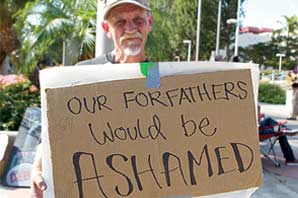 OUR FORFATHERS
Would be
ASHAMED